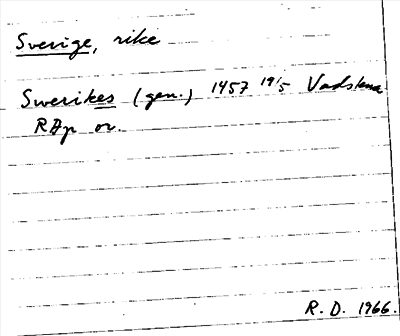 Sverige, rike
Swerikes (gen.) 1457 19/5 Vadstena
RAp or.
R. D. 1966.